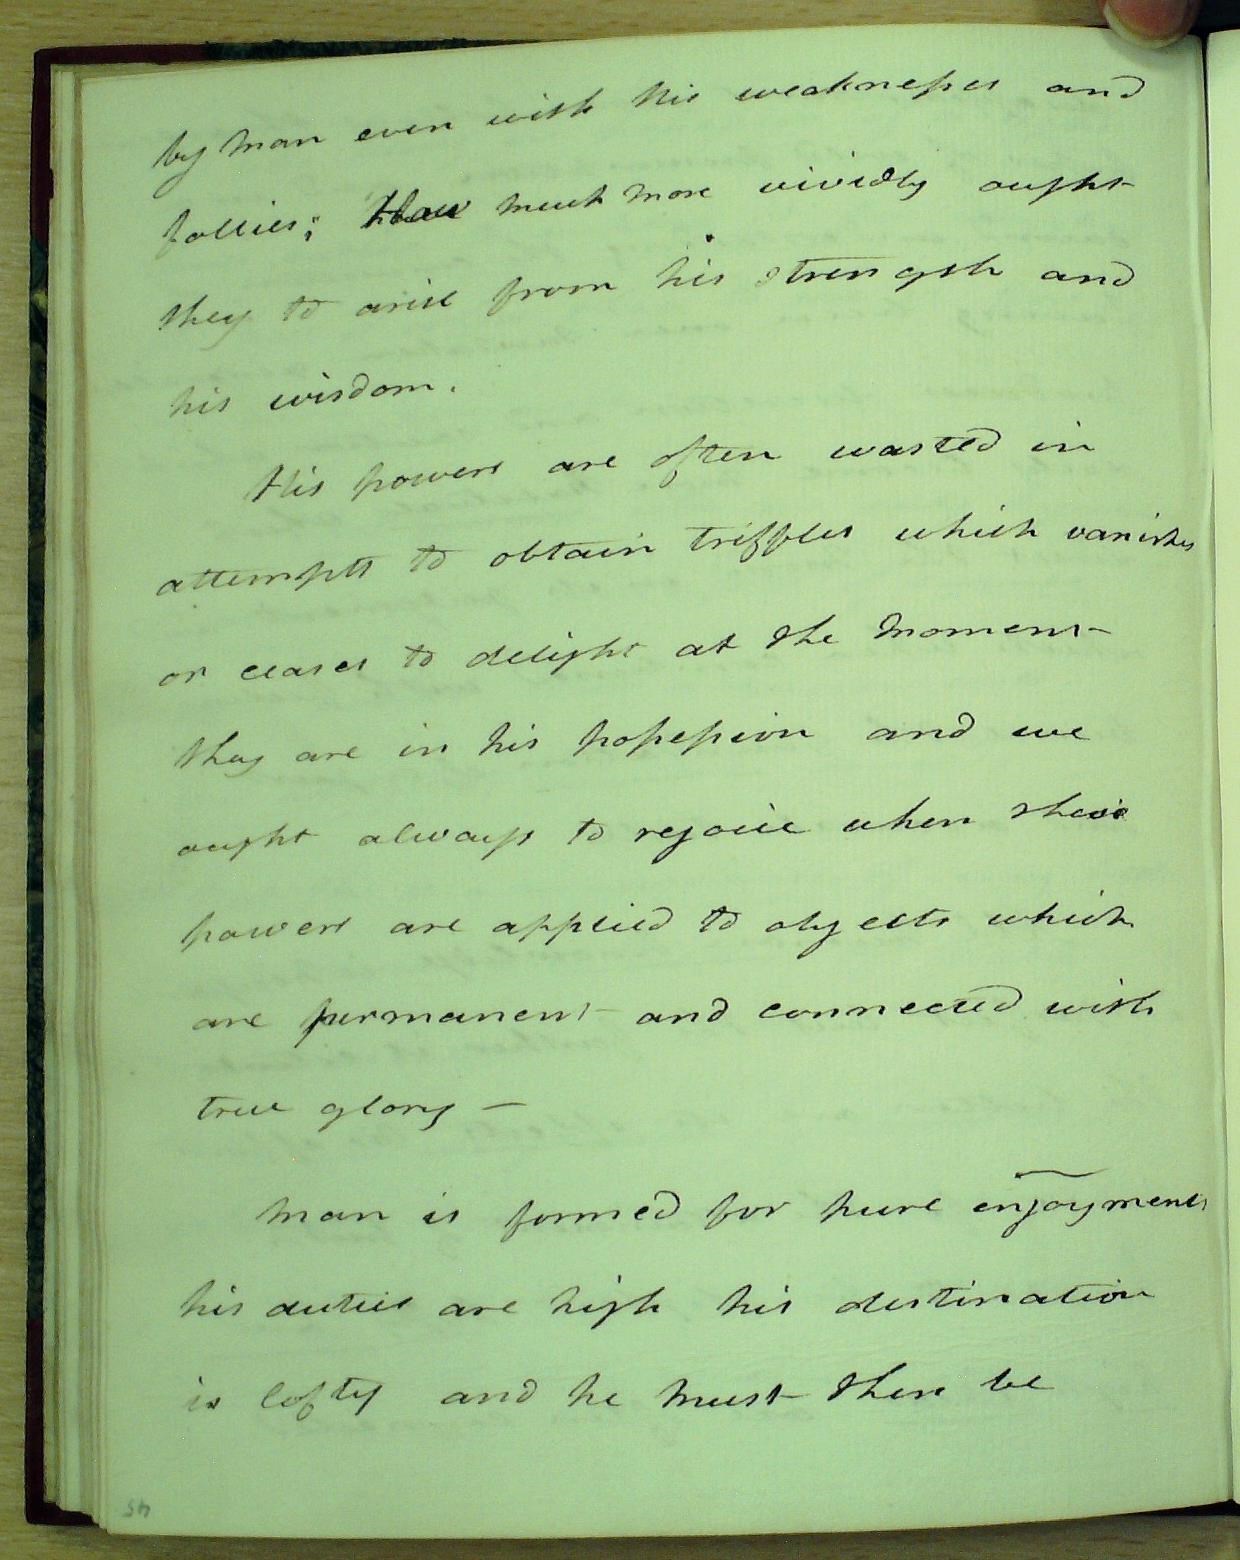 by man even with his weaknesses and
follies; how much more vividly ought
they to arise from his strength and
his wisdom.
His powers are often wasted in
attempts to obtain triffles which vanish
or ceases to delight at the moment
they are in his possession and we
ought always to rejoice when these
powers are applied to objects which
are permanent and connected with
true glory –
Man is formed for pure enjoyment
his duties are high his destination
is lofty and he must then be
45